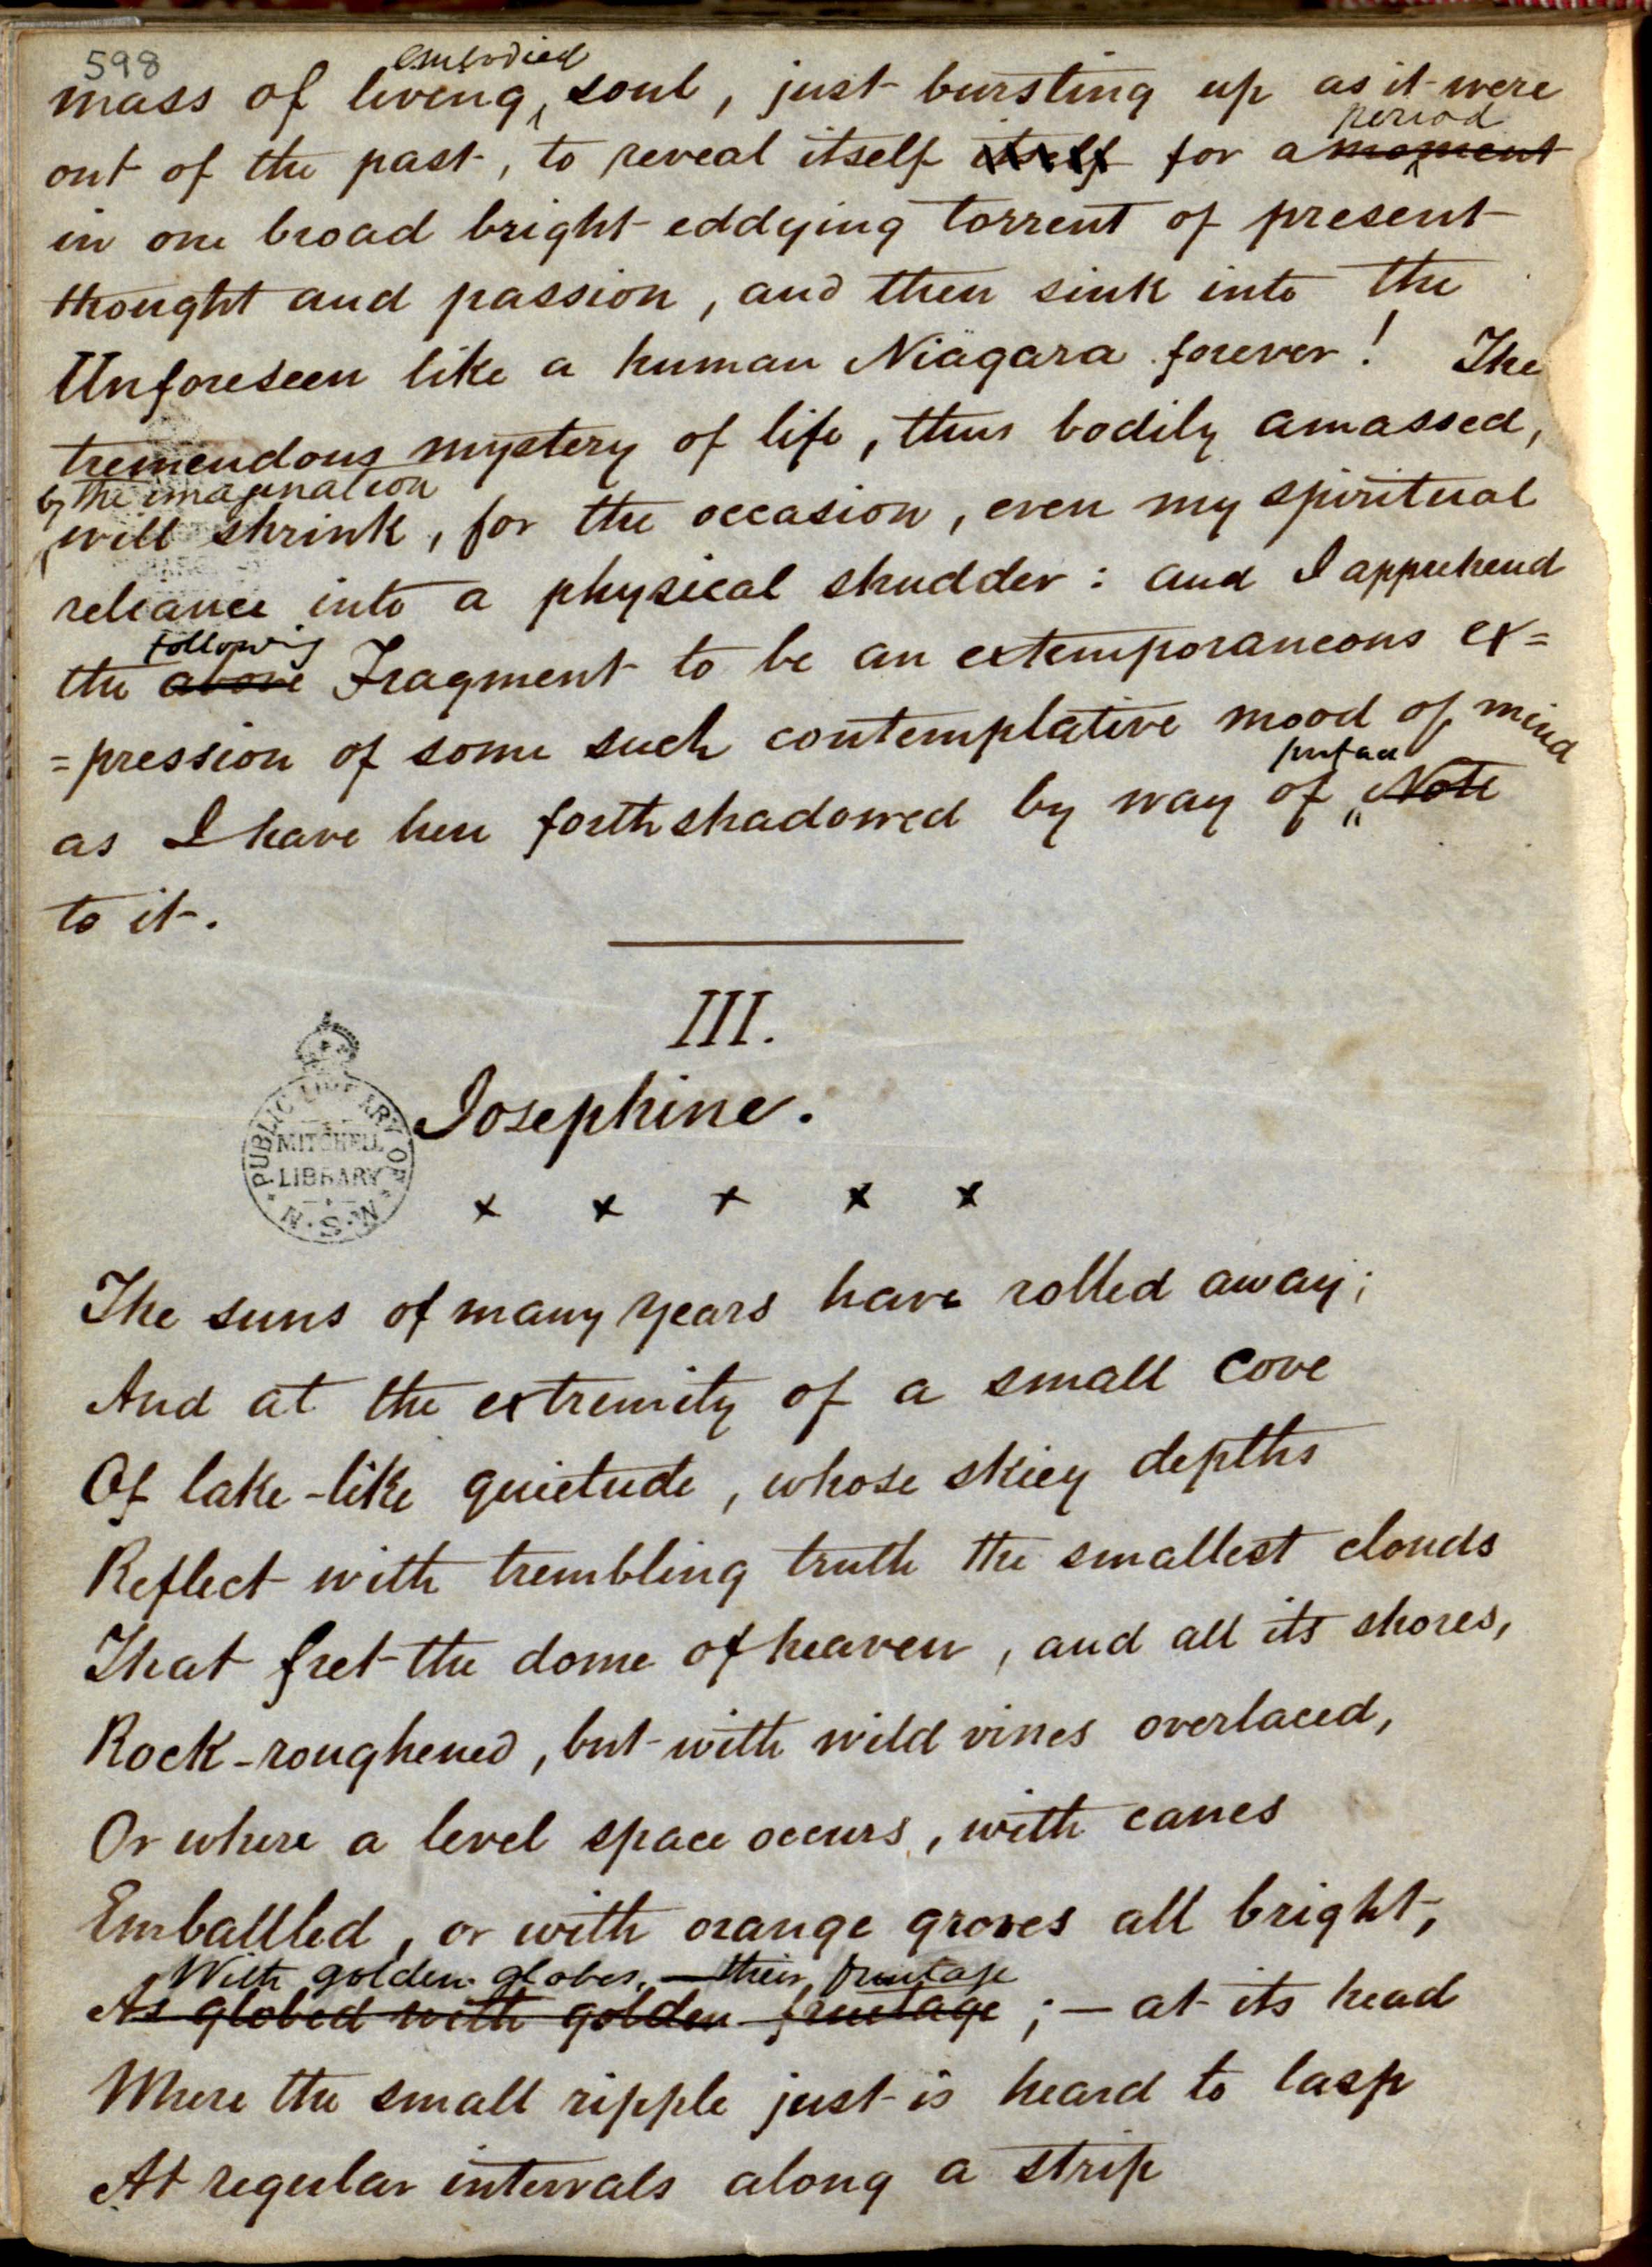 598
mass of living embodied soul, just bursting up as it were
out of the past, to reveal itself itself for a period moment
in one broad bright eddying torrent of present
thought and passion, and then sink into the
Unforeseen like a human Niagara forever! The
tremendous mystery of life, thus bodily amassed,
by the imagination
will shrink, for the occasion, even my spiritual
reliance into a physical shudder: and I apprehend
the following above Fragment to be an extemporaneous ex=
=pression of some such contemplative mood of mind
as I have here forthshadowed by way of preface Note
to it.
III.
Josephine.
x x x x x
PUBLIC LIBRARY OF N.S.W.
MITCHELL
LIBRARY
The suns of many years have rolled away;
And at the extremity of a small cove
Of lake-like quietude, whose skiey depths
Reflect with trembling truth the smallest clouds
That fret the dome of heaven, and all its shores,
Rock-roughened, but with wild vines overlaced,
Or where a level space occurs, with canes
Embattled, or with orange groves all bright,
With golden globes,—their fruitage
As globed with golden fruitage;—at its head
Where the small ripple just is heard to lasp
At regular intervals along a strip